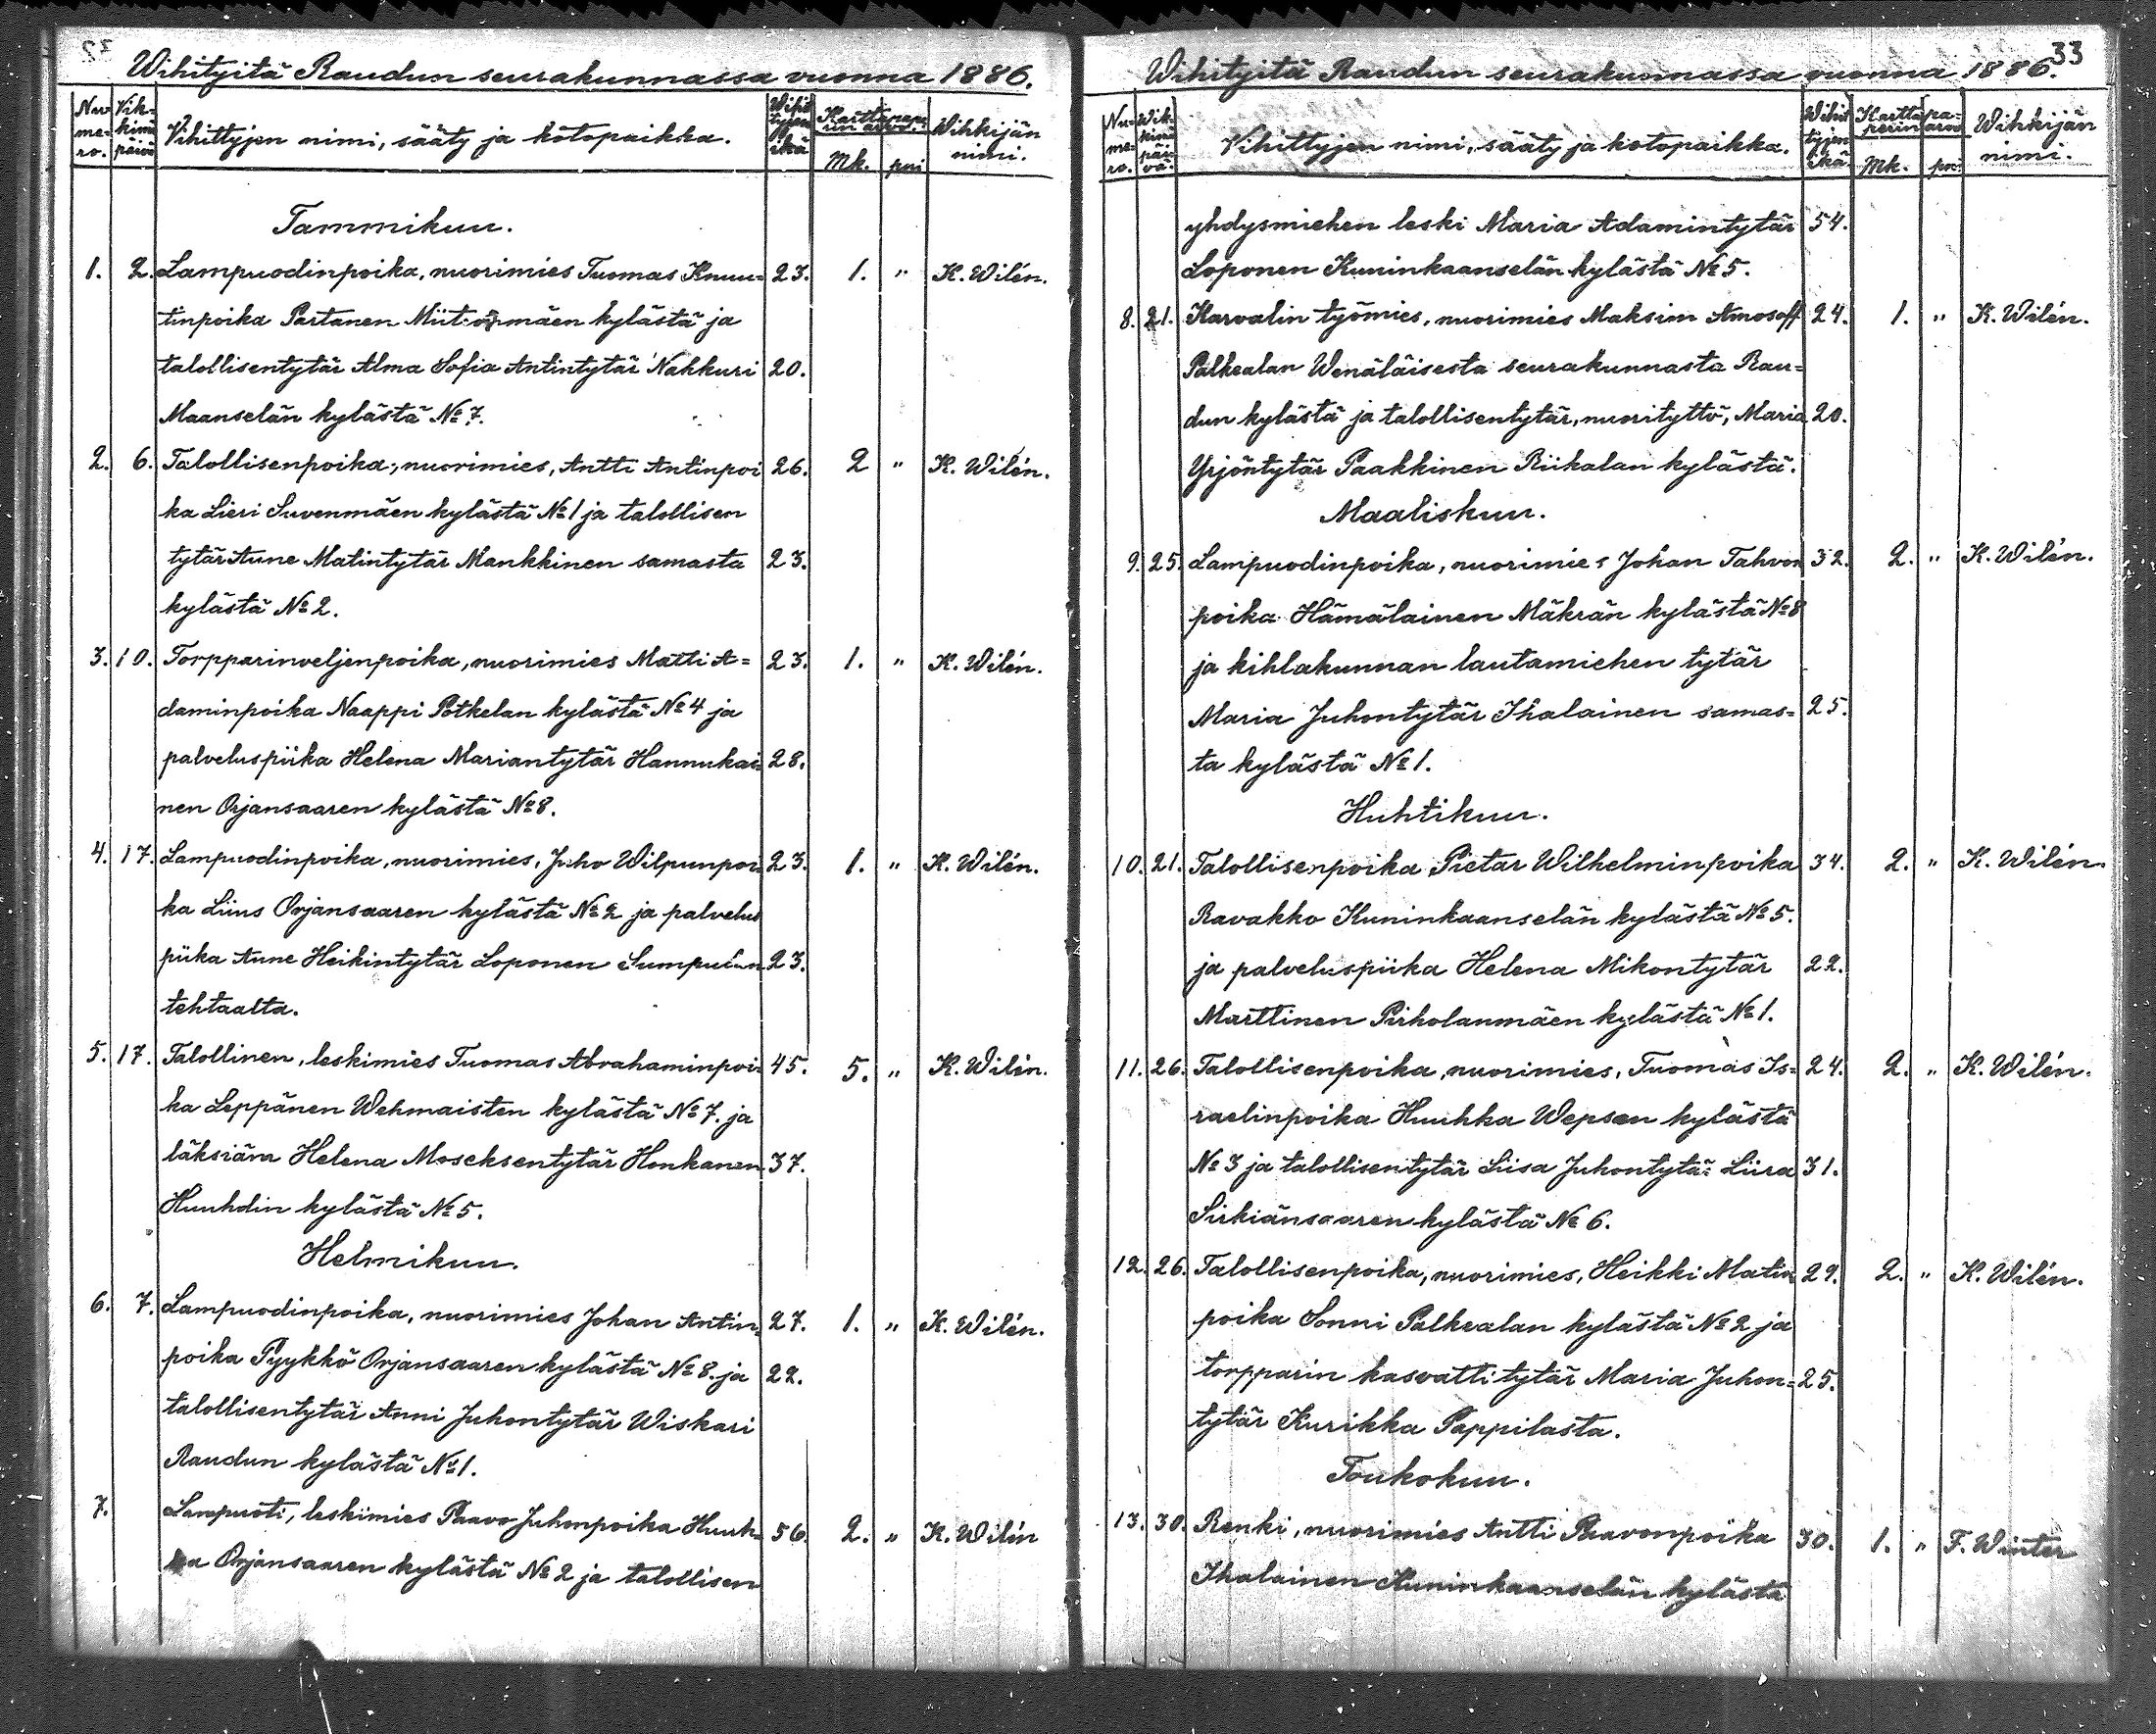 32
Wihityitä Raudun seurakunnassa vuonna 1886.
Nu-me-ro. Vih-kimä päivä Vihittyjen nimi, sääty ja kotopaikka. Wihit tyjen ikä Karttapape-rin arvo. Mk. pni Wihkijän nimi.
Tammikuu.
1. 2. Lampuodinpoika, nuorimies Tuomas Knuu= 23. 1. " K. Wilén.
tinpoika Partanen kylästä ja
talollisentytär Alma Sofia Antintytär Nahkuri 20.
Maanselän kylästä № 7.
2. 6. Talollisenpoika, nuorimies, Antti Antinpoi 26. 2 " K. Wilén.
ka Lieri Suvenmäen kylästä № 1 ja talollisen
tytär Aune Matintytär Mankkinen samasta 23.
kylästä № 2.
3. 10. Torpparinveljenpoika, nuorimies Matti A= 23. 1. " K. Wilén.
daminpoika Naappi Potkelan kylästä № 4 ja
palveluspiika Helena Mariantytär Hannukai= 28.
nen Orjansaaren kylästä № 8.
4. 17. Lampuodinpoika, nuorimies, Juho Wilpunpoi= 23. 1. " K. Wilén.
ka Liius Orjansaaren kylästä № 2 ja palvelus
piika Anne Heikintytär Loponen Sumpulan 23.
tehtaalta.
5. 17. Talollinen, leskimies Tuomas Abrahaminpoi= 45. 5. " K. Wilén.
ka Leppänen Wehmaisten kylästä № 7. ja
läksiäm Helena Moseksentytär Honkanen 37.
Huuhdin kylästä № 5.
Helmikuu.
6. 7. Lampuodinpoika, nuorimies Johan Antin= 27. 1. " K. Wilén.
poika Pyykkö Orjansaaren kylästä № 8. ja 22.
talollisentytär Anni Juhontytär Wiskari
Raudun kylästä № 1.
7. Lampuoti, leskimies Paavo Juhonpoika Huuh= 56. 2. " K. Wilén
ka Orjansaaren kylästä № 2 ja talollisen
33
Wihityitä Raudun seurakunnassa vuonna 1886.
Nu-me-ro. Wih-kimä päi-vä. Vihittyjen nimi, sääty ja kotopaikka. Wihit tyjen ikä. Karttapa-perin arvo Mk. pni Wihkijän nimi.
yhdysmiehen leski Maria Adamintytär 54.
Loponen Kuninkaanselän kylästä № 5.
8. 21. Karvalin työmies, nuorimies Maksim Amosoff 24. 1. " K. Wilén.
Palkealan Wenäläisestä seurakunnasta Rau=
dun kylästä ja talollisentytär, nuorityttö, Maria 20.
Yrjöntytär Paakkinen Riikalan kylästä.
Maaliskuu.
9. 25. Lampuodinpoika, nuorimies Johan Tahvon 32. 2. " K. Wilén.
poika Hämäläinen Mäkrän kylästä № 8
ja kihlakunnan lautamiehen tytär
Maria Juhontytär Ihalainen samas= 25.
ta kylästä № 1.
Huhtikuu.
10. 21. Talollisenpoika Pietar Wilhelminpoika 34. 2. " K. Wilén.
Ravakko Kuninkaanselän kylästä № 5.
ja palveluspiika Helena Mikontytär 22.
Marttinen Pirholanmäen kylästä № 1.
11. 26. Talollisenpoika, nuorimies, Tuomas Is= 24. 2. " K. Wilén.
raelinpoika Huuhka Wepsen kylästä
№ 3 ja talollisentytär Liisa Juhontytär Liira 31.
Sirkiänsaaren kylästä № 6.
12. 26. Talollisenpoika, nuorimies, Heikki Matin 29. 2. " K. Wilén.
poika Sonni Palkealan kylästä № 2 ja
torpparin kasvattitytär Maria Juhon= 25.
tytär Kurikka Pappilasta.
Toukokuu.
13. 30. Renki, nuorimies Antti Paavonpoika 30. 1. " F. Winter
Ihalainen Kuninkaanselän kylästä